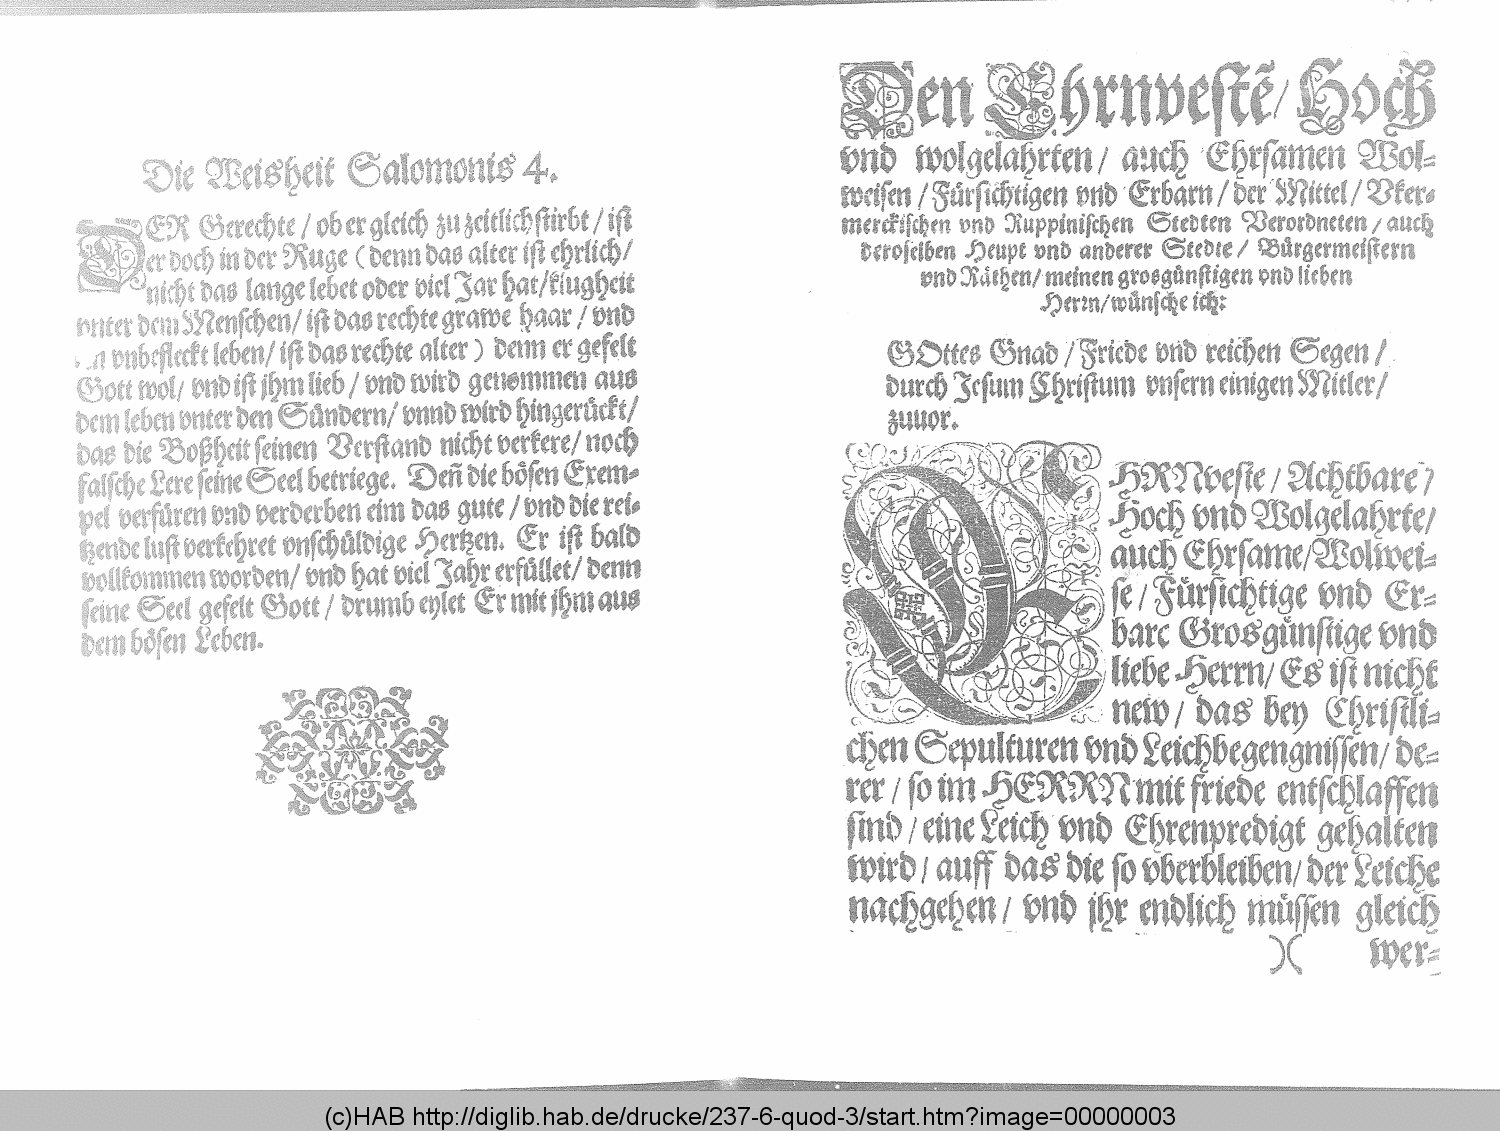 Die Weisheit Salomonis 4.
DER Gerechte / ob er gleich zu zeitlich stirbt / ist
er doch in der Ruge (denn das alter ist ehrlich/
nicht das lange lebet oder viel Jar hat/klugheit
vnter dem Menschen/ ist das rechte grawe haar / vnd
vnbefleckt leben/ ist das rechte alter) denn er gefelt
Gott wol/ vnd ist jhm lieb / vnd wird genommen aus
dem leben vnter den Sündern/ vnnd wird hingerückt/
das die Boßheit seinen Verstand nicht verkere/ noch
falsche Lere seine Seel betriege. Deñ die bösen Exem-
pel verfüren vnd verderben eim das gute / vnd die rei-
tzende lust verkehret vnschüldige Hertzen. Er ist bald
vollkommen worden/ vnd hat viel Jahr erfüllet/ denn
seine Seel gefelt Gott / drumb eylet Er mit jhm aus
dem bösen Leben.
Den Ehrnvestē/ Hoch
vnd wolgelahrten / auch Ehrsamen Wol-
weisen / Fürsichtigen vnd Erbarn / der Mittel / Vker-
merckischen vnd Ruppinischen Stedten Verordneten / auch
deroselben Heupt vnd anderer Stedte / Bürgermeistern
vnd Räthen/ meinen grosgünstigen vnd lieben
Herrn/wünsche ich:
GOttes Gnad / Friede vnd reichen Segen /
durch Jesum Christum vnsern einigen Mitler/
zuuor.
EHRNveste / Achtbare /
Hoch vnd Wolgelahrte/
auch Ehrsame/Wolwei-
se / Fürsichtige vnd Er-
bare Grosgünstige vnd
liebe Herrn/ Es ist nicht
new / das bey Christli-
chen Sepulturen vnd Leichbegengnissen/ de-
rer / so im HERRN mit friede entschlaffen
sind / eine Leich vnd Ehrenpredigt gehalten
wird / auff das die so vberbleiben/ der Leiche
nachgehen / vnd jhr endlich müssen gleich
)( wer-
(c)HAB http://diglib.hab.de/drucke/237-6-quod-3/start.htm?image=00000003